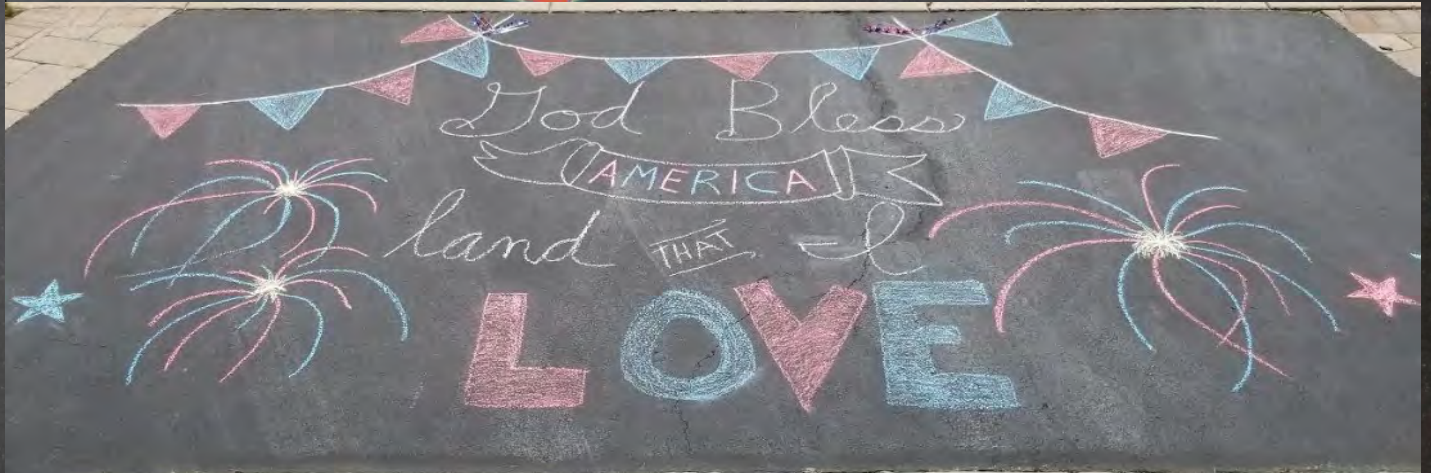 God Bless
AMERICA
land THAT I
LOVE